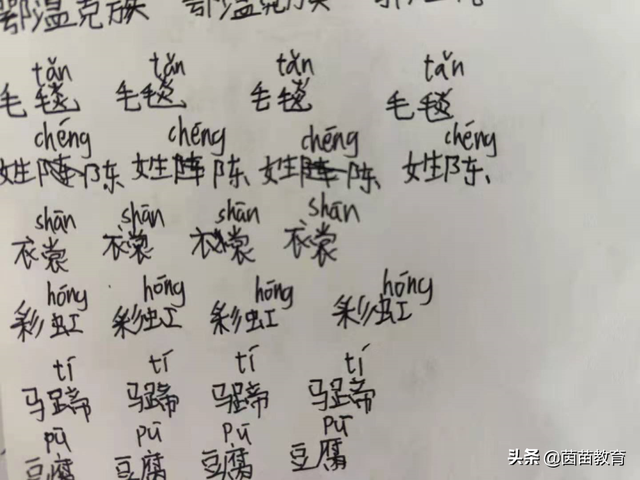 鄂温克族 鄂温克族
tǎn tǎn tǎn tǎn
毛毯 毛毯 毛毯 毛毯
chéng chéng chéng chéng
姓陈 姓陈 姓陈 姓陈
shān shān shān shān
衣裳 衣裳 衣裳 衣裳
hóng hóng hóng hóng
彩虹 彩虹 彩虹 彩虹
tí tí tí tí
马蹄 马蹄 马蹄 马蹄
pū pū pū pū
豆腐 豆腐 豆腐 豆腐
头条 @茵苗教育